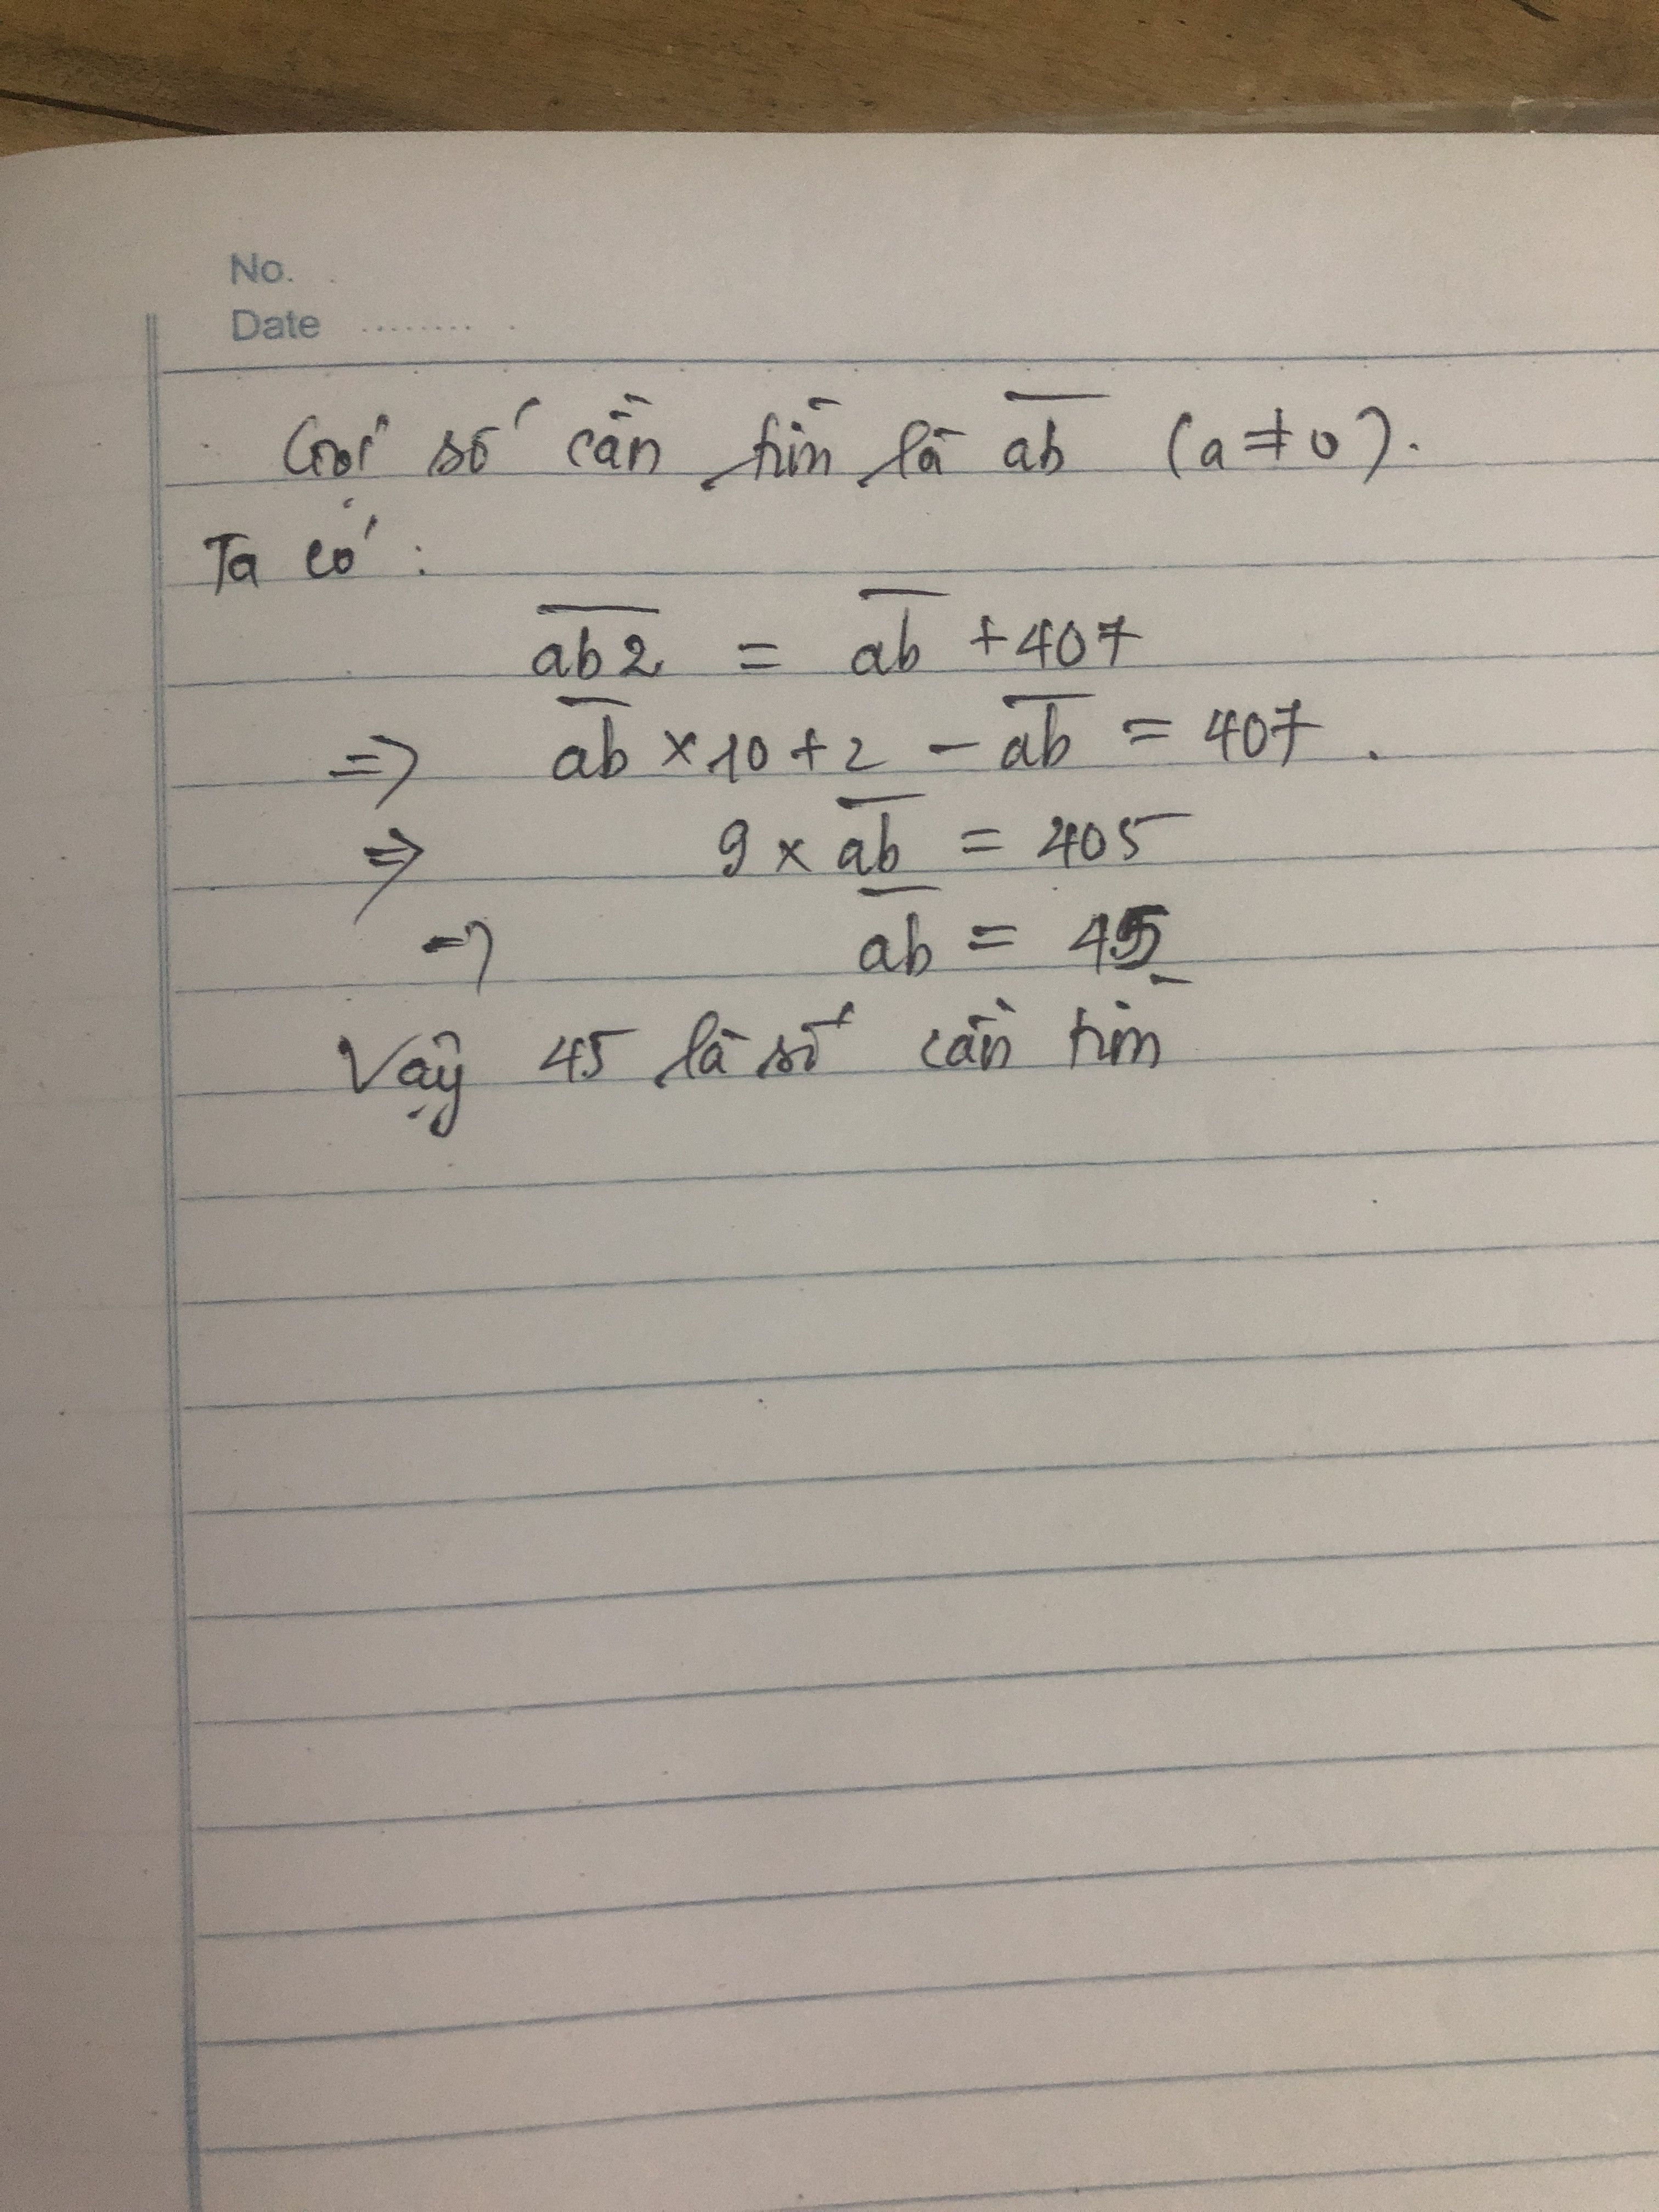 No.
Date ........
Gọi số cần tìm là ab (a≠0).
Ta có :
ab2 = ab +407
=> ab ×10+2 - ab = 407 .
=> 9 × ab = 405
=> ab = 45
Vậy 45 là số cần tìm